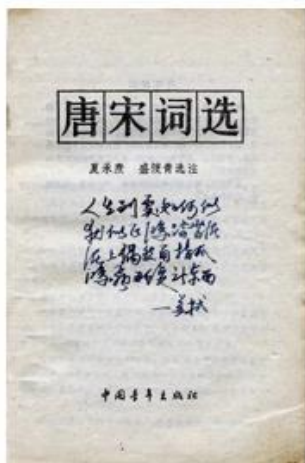 唐宋词选
夏承焘 盛弢青选注
人生到处知何似
似飞鸿踏雪泥
泥上偶然留指爪
鸿飞那复计东西
—苏轼
中国青年出版社